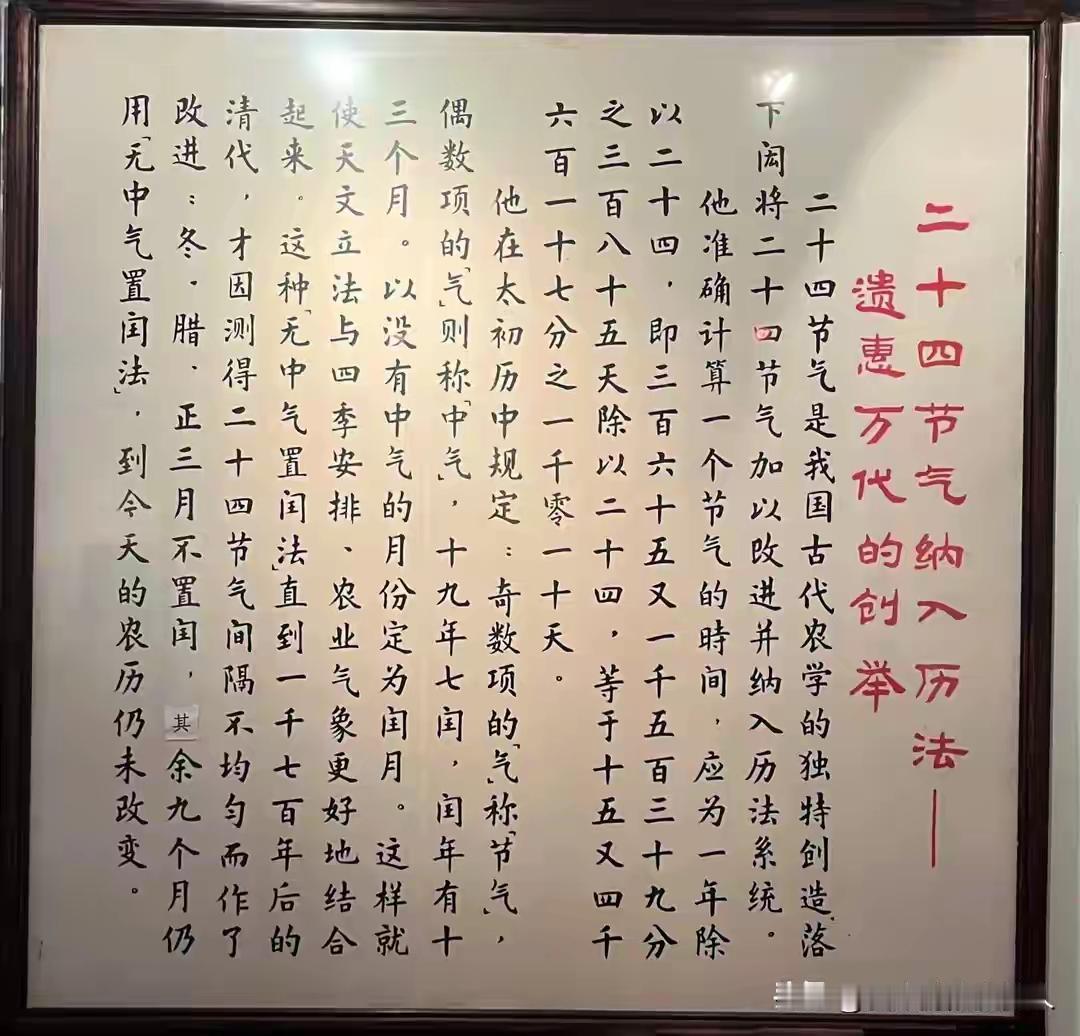 二十四节气纳入历法——
遗惠万代的创举
二十四节气是我国古代农学的独特创造,落
下闳将二十四节气加以改进并纳入历法系统。
他准确计算一个节气的時间,应为一年除
以二十四,即三百六十五又一千五百三十九分
之三百八十五天除以二十四,等于十五又四千
六百一十七分之一千零一十天。
他在太初历中规定:奇数项的「气」称「节气」,
偶数项的「气」则称「中气」,十九年七闰,闰年有十
三个月。以没有中气的月份定为闰月。这样就
使天文立法与四季安排、农业气象更好地结合
起来。这种「无中气置闰法」直到一千七百年后的
清代,才因测得二十四节气间隔不均匀而作了
改进:冬·腊·正三月不置闰,其余九个月仍
用「无中气置闰法」,到今天的农历仍未改变。